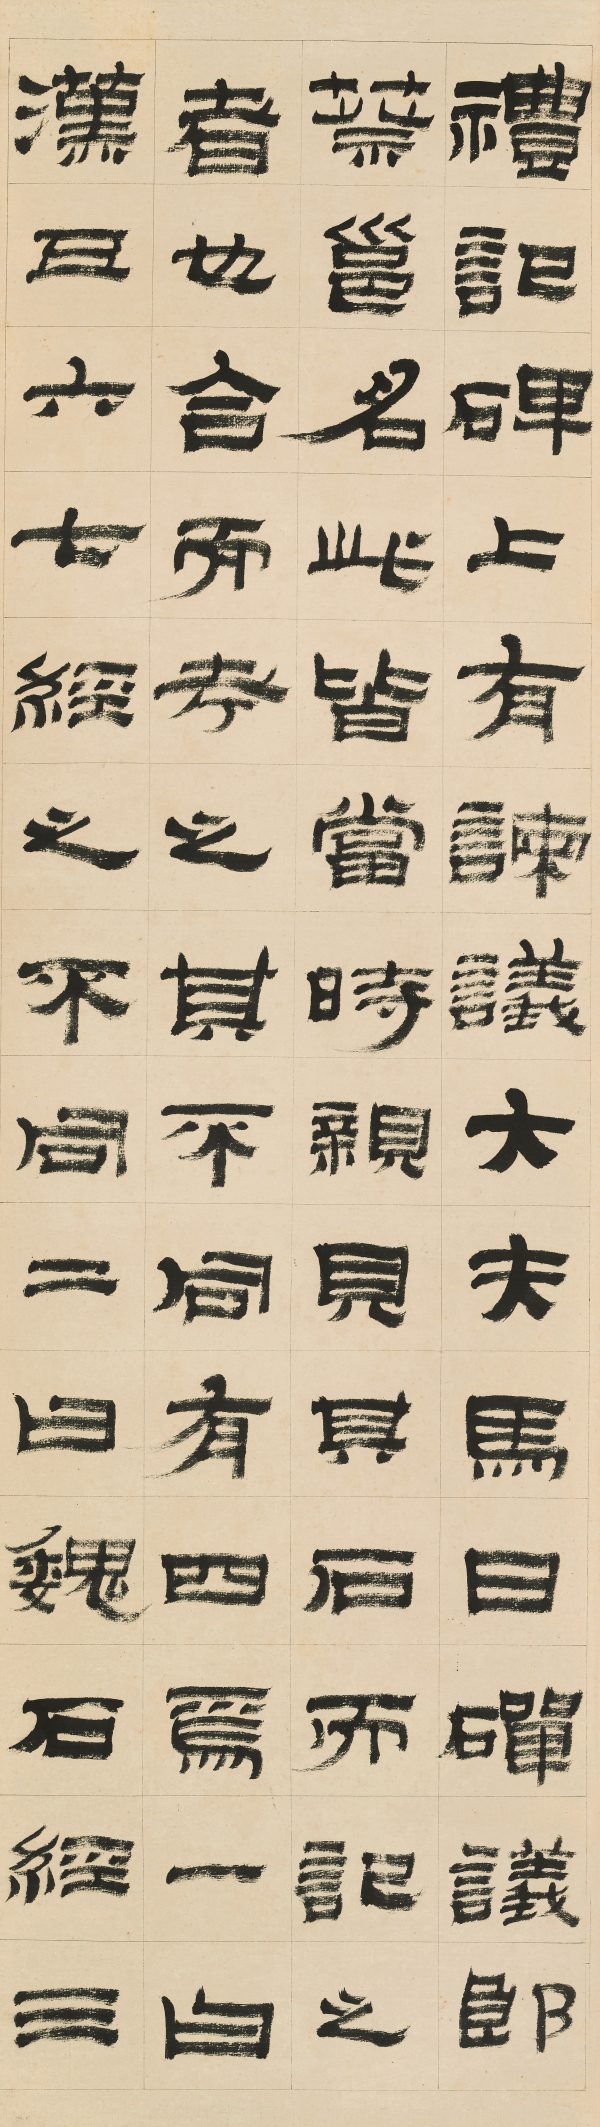 禮記碑上有諫議大夫馬日磾議郎
蔡邕名此皆當時親見其石而記之
者也合而考之其不同有四焉一曰
漢五六七經之不同二曰魏石經三